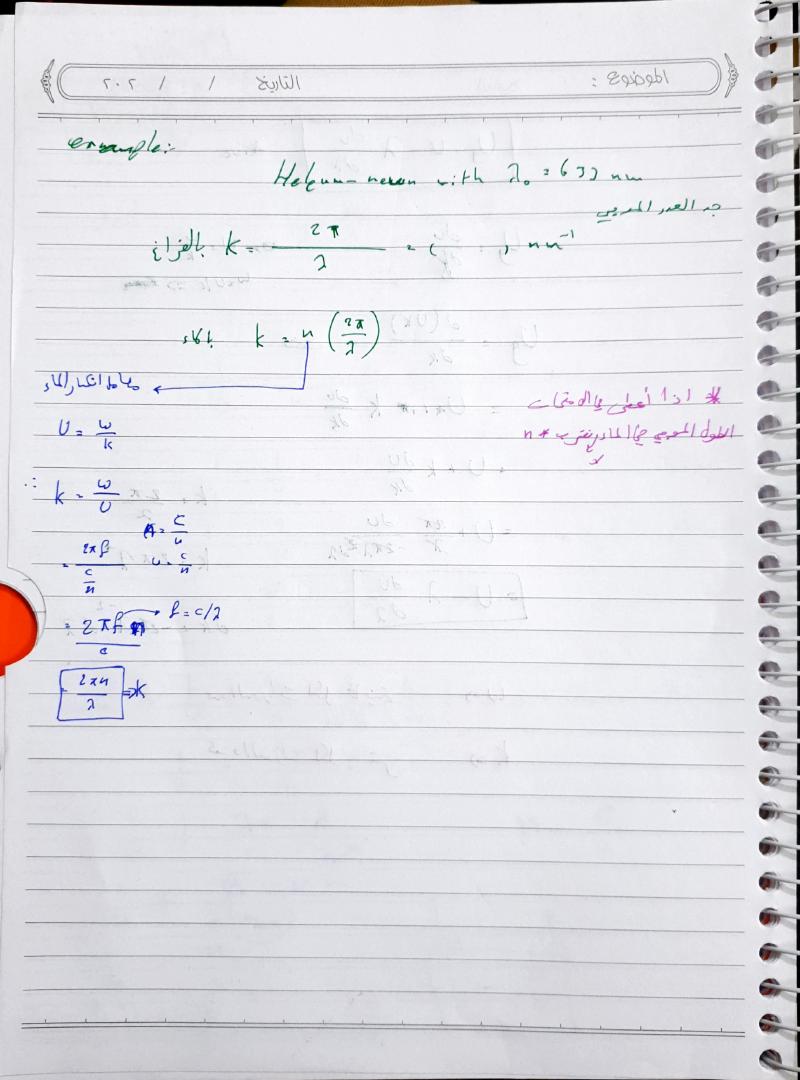 الموضوع :
التاريخ / / ٢٠٢
example:-
Helium-neon with λ₀ = 632 nm
جد العدد الموجي
بالفراغ k = 2π / λ = ( ) nm⁻¹
بالماء k = n (2π / λ)
معامل انكسار الماء
* اذا أعطى في الامتحان
الطول الموجي في الماء نضرب * n
U = ω / k
∴ k = ω / U
n = c / u
= 2πf / (c / n) u = c / n
= 2πf n / c f = c/λ
= 2πn / λ ⇒ k